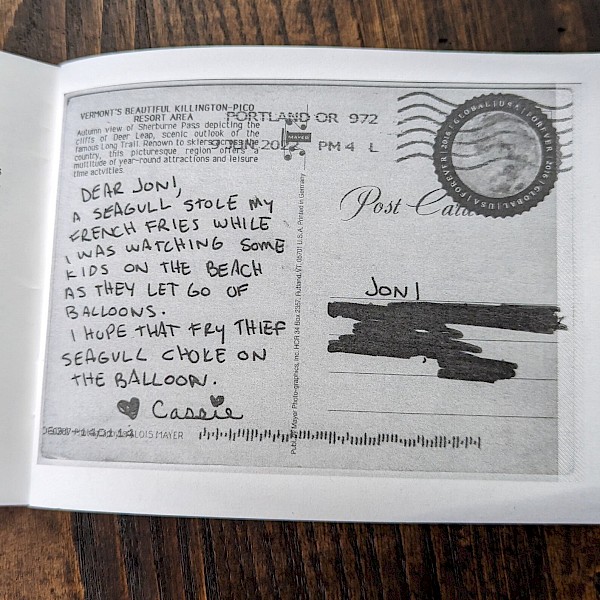 VERMONT'S BEAUTIFUL KILLINGTON-PICO
RESORT AREA
Autumn view of Sherburne Pass depicting the
cliffs of Deer Leap, scenic outlook of the
famous Long Trail. Renown to skiers across the
country, this picturesque region offers a
multitude of year-round attractions and leisure
time activities.
PORTLAND OR 972
PM 4 L
MAYER
FOREVER 2016 | GLOBAL | USA | FOREVER 2016 | GLOBAL | USA
Post Card
DEAR JONI,
A SEAGULL STOLE MY
FRENCH FRIES WHILE
I WAS WATCHING SOME
KIDS ON THE BEACH
AS THEY LET GO OF
BALLOONS.
I HOPE THAT FRY THIEF
SEAGULL CHOKE ON
THE BALLOON.
Cassie
JONI
Publ by Mayer Photo-graphics, Inc. HCR 34 Box 2357, Rutland, VT. 05701 U.S.A. Printed in Germany
LOIS MAYER